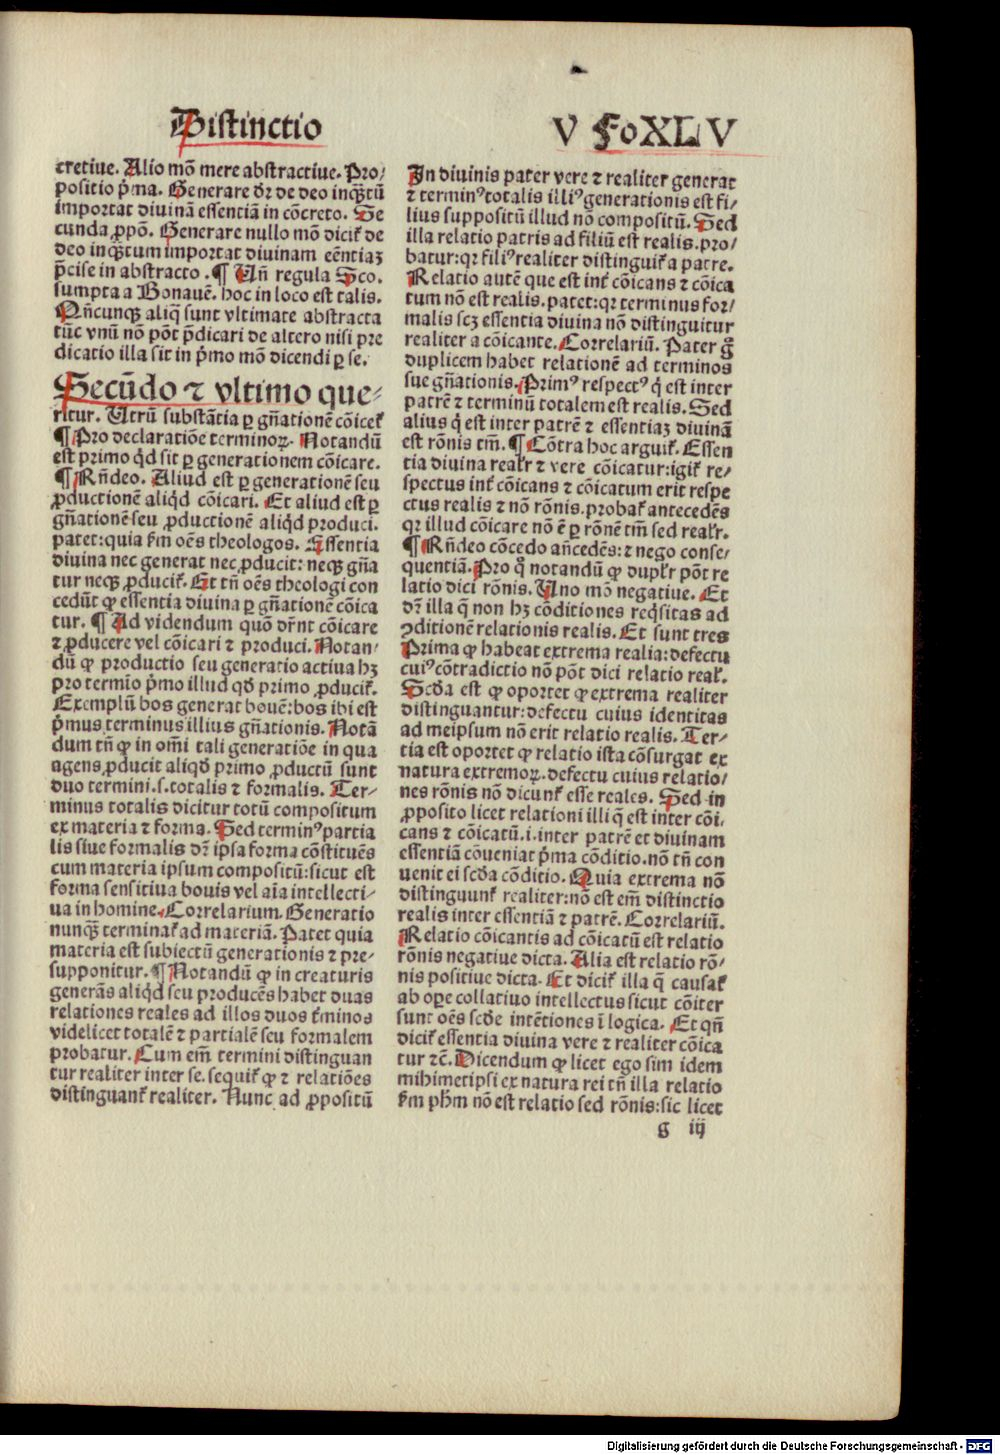 Distinctio V FoXLV
cretiue. Alio mõ mere abstractiue. Pro/
positio p̃ma. Generare dr̃ de deo inqȝtũ
importat diuinã essentiã in cõcreto. Se
cunda ꝓpõ. Generare nullo mõ dicit̃ de
deo inqȝtum importat diuinam eẽntiaȝ
p̃cise in abstracto. ¶ Uñ regula Sco.
sumpta a Bonauẽ. hoc in loco est talis.
Qñcunqȝ aliq̃ sunt vltimate abstracta
tũc vnũ nõ põt p̃dicari de altero nisi pre
dicatio illa sit in p̃mo mõ dicendi ꝑ se.
Secũdo ⁊ vltimo que⸗
ritur. Utrũ substãtia ꝑ gñationẽ cõicet̃
¶ Pro declaratiõe terminoꝝ. Notandũ
est primo qd̃ sit ꝑ generationem cõicare.
¶ Rñdeo. Aliud est ꝑ generationẽ seu
ꝓductionẽ aliqd̃ cõicari. Et aliud est ꝑ
gñationẽ seu ꝓductionẽ aliqd̃ produci.
patet: quia ẜm oẽs theologos. Essentia
diuina nec generat nec ꝓducit: neqȝ gña
tur neqȝ ꝓducit̃. Et tñ oẽs theologi con
cedũt ꝙ essentia diuina ꝑ gñationẽ cõica
tur. ¶ Ad videndum quõ dr̃nt cõicare
⁊ ꝓducere vel cõicari ⁊ produci. Notan/
dũ ꝙ productio seu generatio actiua hȝ
pro termĩo p̃mo illud qd̃ primo ꝓducit̃.
Exemplũ bos generat bouẽ: bos ibi est
p̃mus terminus illius gñationis. Notã
dum tñ ꝙ in om̃i tali generatiõe in qua
agens ꝓducit aliqd̃ primo ꝓductũ sunt
duo termini.s. totalis ⁊ formalis. Ter⸗
minus totalis dicitur totũ compositum
ex materia ⁊ forma. Sed terminꝰ partia
lis siue formalis dr̃ ipsa forma cõstituẽs
cum materia ipsum compositũ: sicut est
forma sensitiua bouis vel aĩa intellecti⸗
ua in homine. Correlarium. Generatio
nunqȝ terminat̃ ad materiã. Patet quia
materia est subiectũ generationis ⁊ pre⸗
supponitur. ¶ Notandũ ꝙ in creaturis
generãs aliqd̃ seu producẽs habet duas
relationes reales ad illos duos t̃minos
videlicet totalẽ ⁊ partialẽ seu formalem
probatur. Cum em̃ termini distinguan
tur realiter inter se. sequit̃ ꝙ ⁊ relatiões
distinguant̃ realiter. Nunc ad ꝓpositũ
In diuinis pater vere ⁊ realiter generat
⁊ terminꝰ totalis illiꝰ generationis est fi⸗
lius suppositũ illud nõ compositũ. Sed
illa relatio patris ad filiũ est realis. pro/
batur: qr filiꝰ realiter distinguit̃ a patre.
Relatio autẽ que est int̃ cõicans ⁊ cõica
tum nõ est realis. patet: qr terminus for/
malis scȝ essentia diuina nõ distinguitur
realiter a cõicante. Correlariũ. Pater gͦ
duplicem habet relationẽ ad terminos
sue gñationis. Primꝰ respectꝰ q̃ est inter
patrẽ ⁊ terminũ totalem est realis. Sed
alius q̃ est inter patrẽ ⁊ essentiaȝ diuinã
est rõnis tm̃. ¶ Cõtra hoc arguit̃. Essen
tia diuina realr̃ ⁊ vere cõicatur: igit̃ re/
spectus int̃ cõicans ⁊ cõicatum erit respe
ctus realis ⁊ nõ rõnis. probat̃ antecedẽs
qr illud cõicare nõ ẽ ꝑ rõnẽ tm̃ sed realr̃.
¶ Rñdeo cõcedo añcedẽs: ⁊ nego conse/
quentiã. Pro qͦ notandũ ꝙ duplr̃ põt re
latio dici rõnis. Uno mõ negatiue. Et
dr̃ illa q̃ non hȝ cõditiones reqͥsitas ad
ꝯditionẽ relationis realis. Et sunt tres
Prima ꝙ habeat extrema realia: defectu
cuiꝰ cõtradictio nõ põt dici relatio real̃.
Scd̃a est ꝙ oportet ꝙ extrema realiter
distinguantur: defectu cuius identitas
ad meipsum nõ erit relatio realis. Ter⸗
tia est oportet ꝙ relatio ista cõsurgat ex
natura extremoꝝ. defectu cuius relatio/
nes rõnis nõ dicunt̃ esse reales. Sed in
ꝓposito licet relationi illi q̃ est inter cõi⸗
cans ⁊ cõicatũ.i. inter patrẽ et diuinam
essentiã cõueniat p̃ma cõditio. nõ tñ con
uenit ei scd̃a cõditio. Quia extrema nõ
distinguunt̃ realiter: nõ est em̃ distinctio
realis inter essentiã ⁊ patrẽ. Correlariũ.
Relatio cõicantis ad cõicatũ est relatio
rõnis negatiue dicta. Alia est relatio rõ⸗
nis positiue dicta. Et dicit̃ illa q̃ causat̃
ab oꝑe collatiuo intellectus sicut cõiter
sunt oẽs scd̃e intẽtiones ĩ logica. Et qñ
dicit̃ essentia diuina vere ⁊ realiter cõica
tur ⁊c̃. Dicendum ꝙ licet ego sim idem
mihimetipsi ex natura rei tñ illa relatio
ẜm ph̃m nõ est relatio sed rõnis: sic licet
g iij
Digitalisierung gefördert durch die Deutsche Forschungsgemeinschaft - DFG